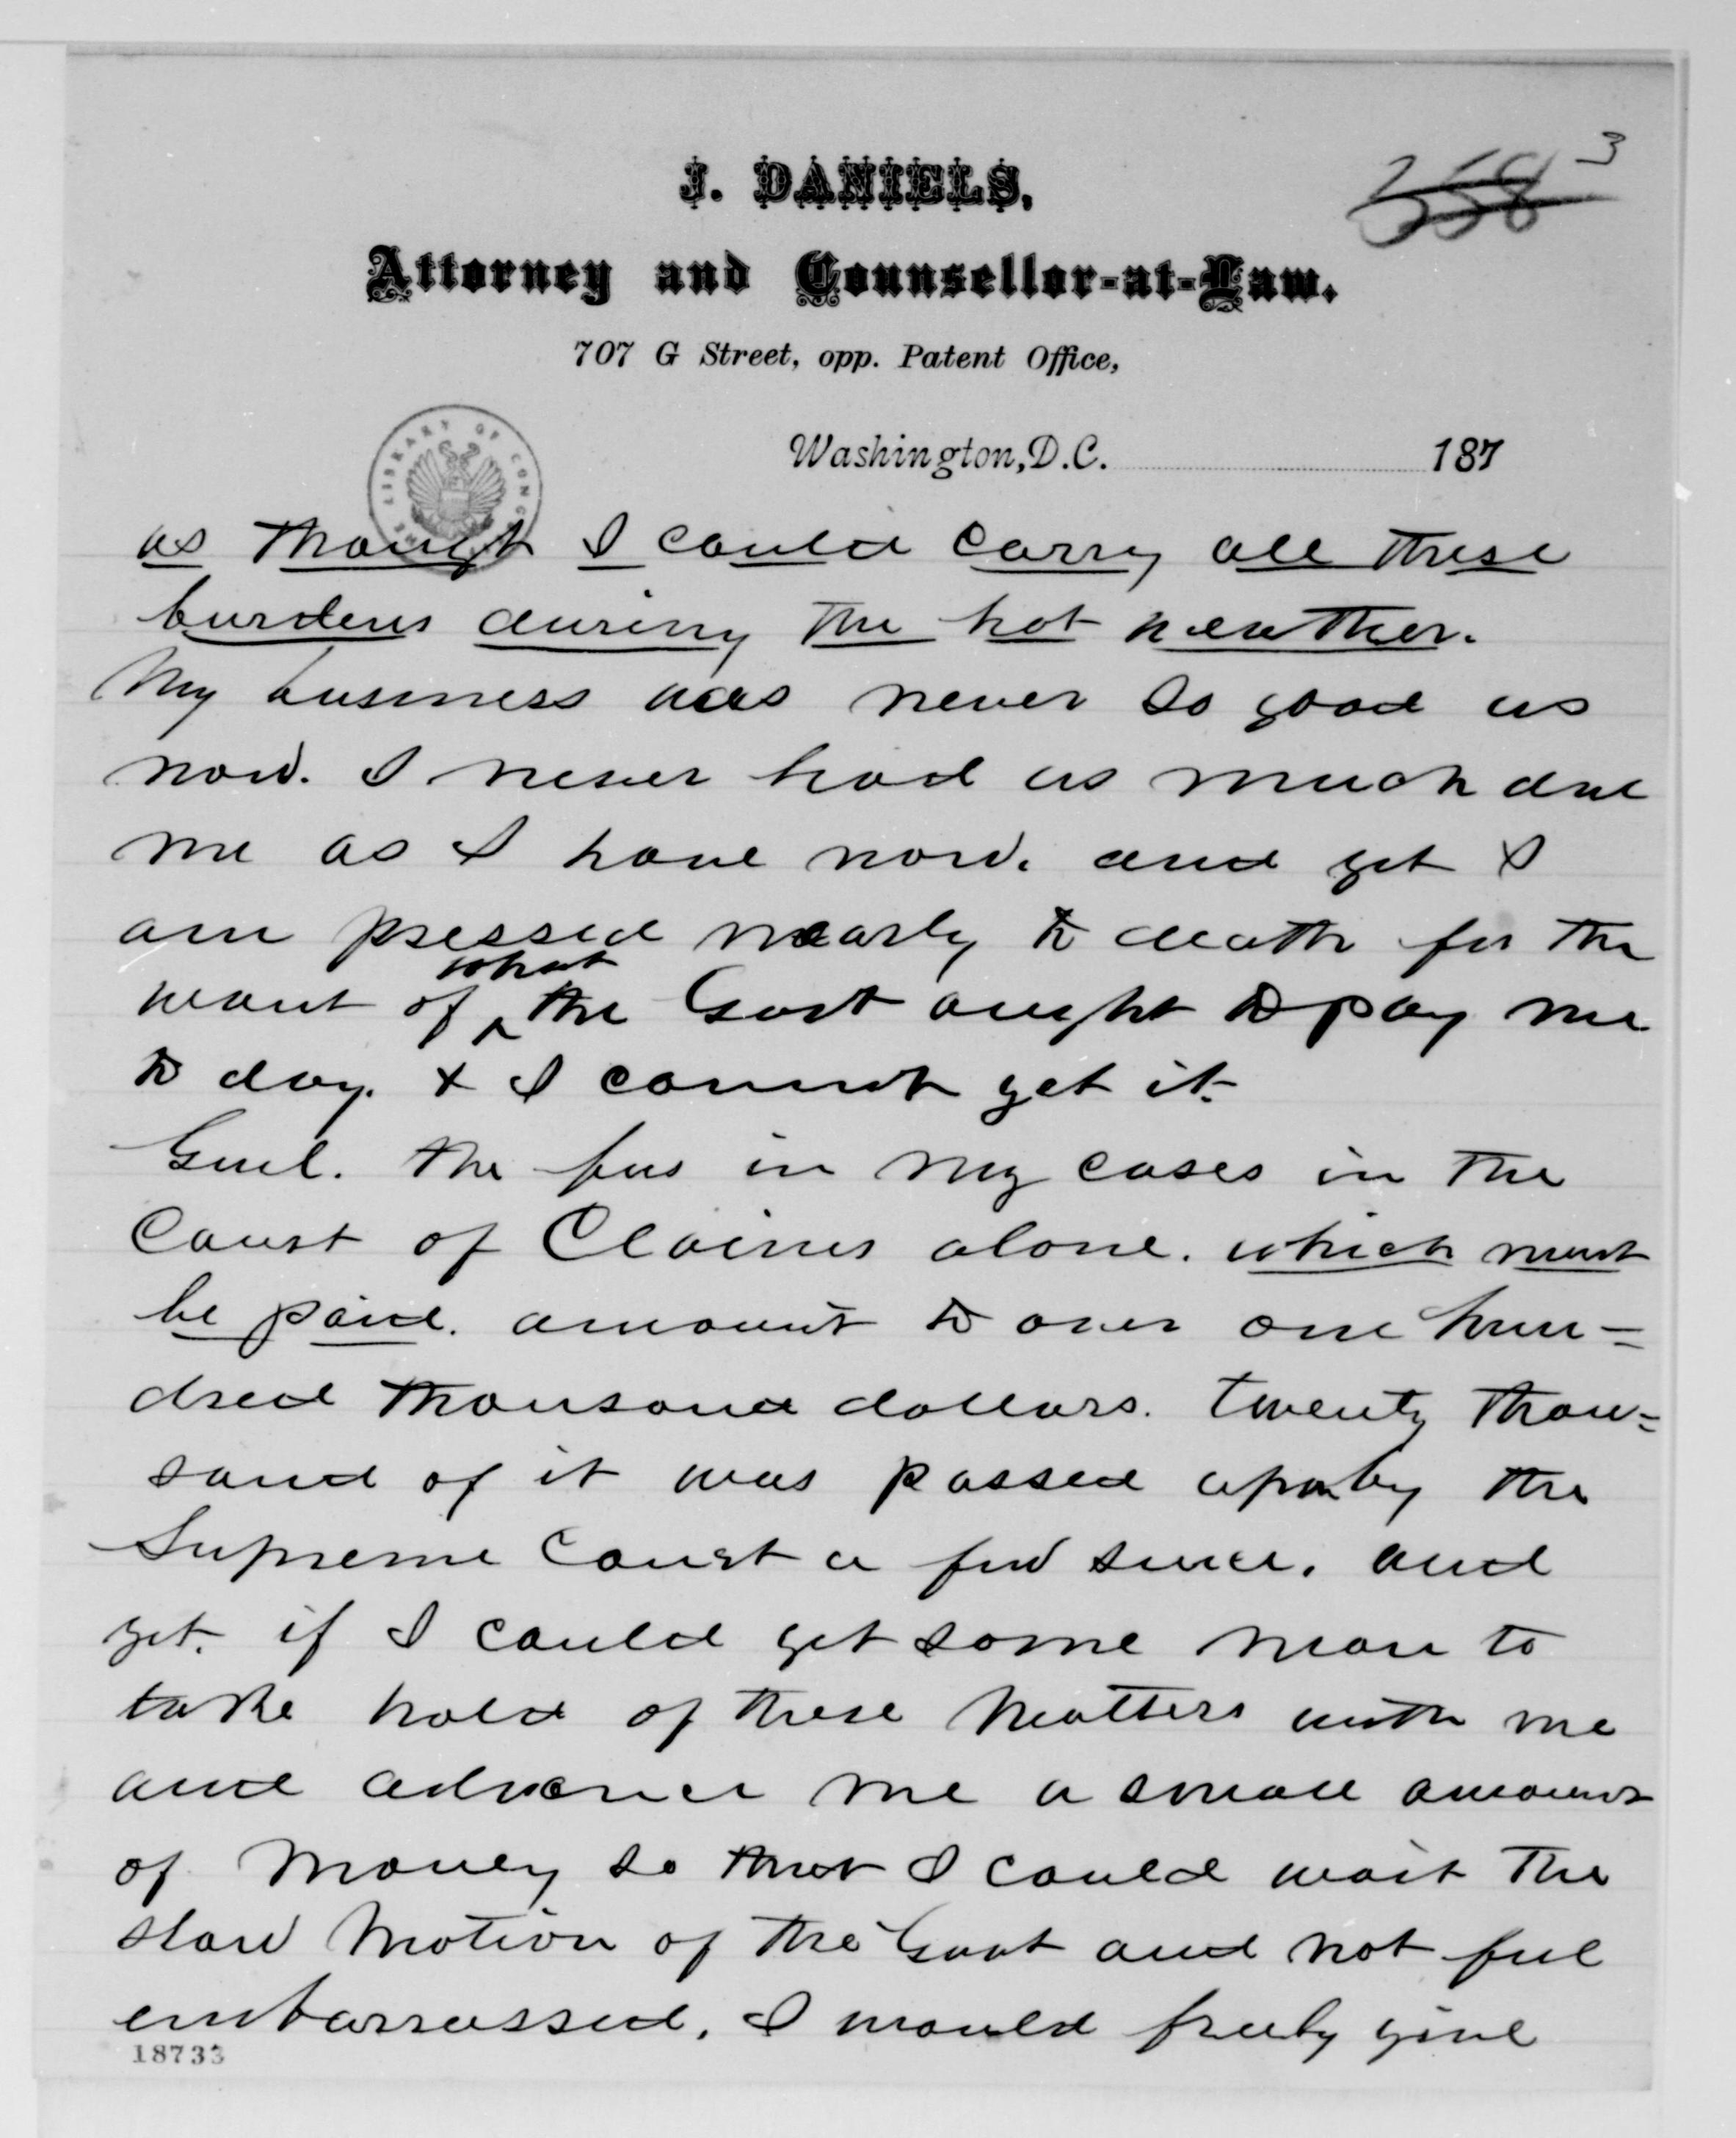 3
358
J. DANIELS,
Attorney and Counsellor-at-Law.
707 G Street, opp. Patent Office,
Washington, D.C. 187
LIBRARY OF CONGRESS
as though I could carry all these
burdens during the hot weather.
My business was never so good as
now. I never had as much due
me as I have now. and yet I
am pressed nearly to death for the
want of what the Govt ought to pay me
to day. & I cannot get it.
Genl. the fees in my cases in the
Court of Claims alone. which must
be paid. amount to over one hun=
dred thousand dollars. twenty thou=
sand of it was passed upon by the
Supreme Court a few since. and
yet. if I could get some man to
take hold of these matters with me
and advance me a small amount
of money so that I could wait the
slow motion of the Govt and not feel
embarrassed. I would freely give
18733